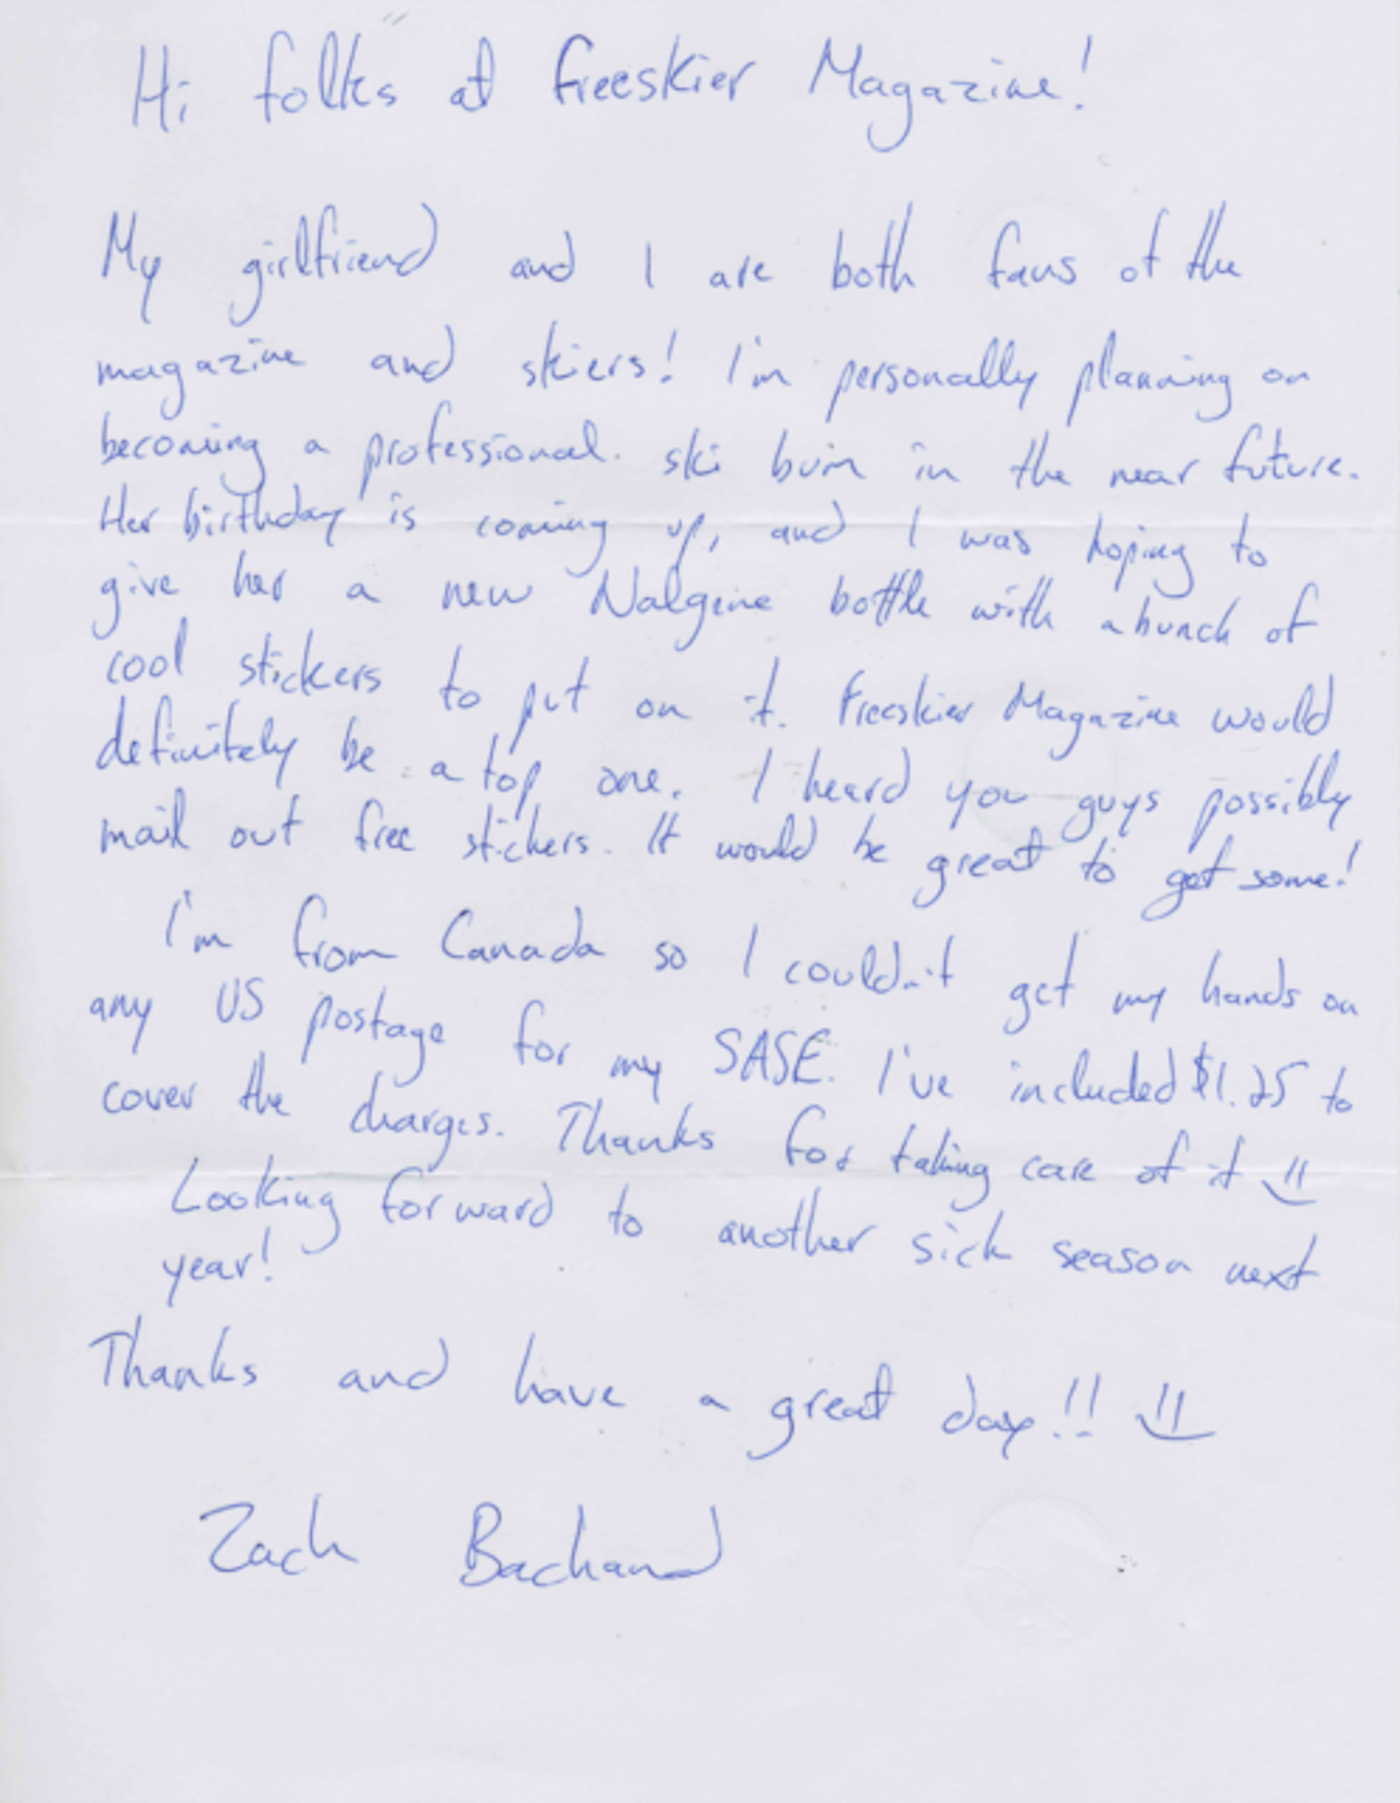 Hi folks at Freeskier Magazine!
My girlfriend and I are both fans of the
magazine and skiers! I'm personally planning on
becoming a professional ski bum in the near future.
Her birthday is coming up, and I was hoping to
give her a new Nalgene bottle with a bunch of
cool stickers to put on it. Freeskier Magazine would
definitely be a top one. I heard you guys possibly
mail out free stickers. It would be great to get some!
I'm from Canada so I couldn't get my hands on
any US postage for my SASE. I've included $1.25 to
cover the charges. Thanks for taking care of it =)
Looking forward to another sick season next
year!
Thanks and have a great day!! =)
Zach Bachand